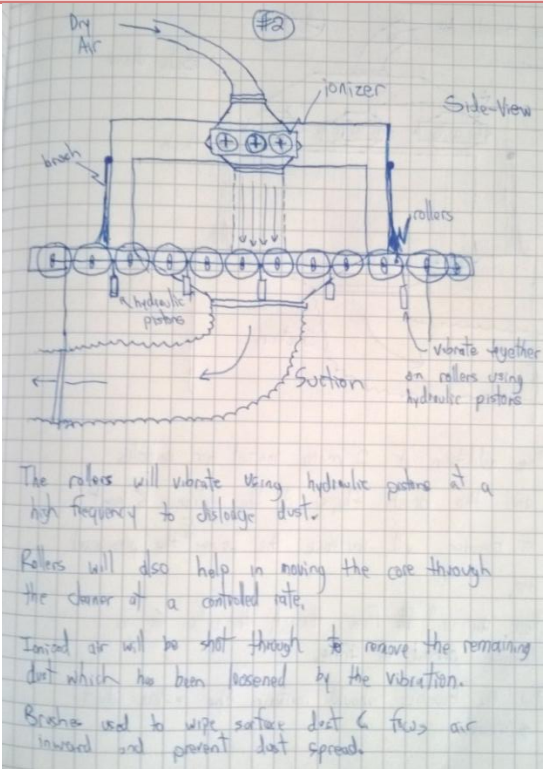 #2
Dry
Air
ionizer
Side-View
brush
rollers
+ + +
hydraulic
pistons
Suction
vibrate together
on rollers using
hydraulic pistons
The rollers will vibrate using hydraulic pistons at a
high frequency to dislodge dust.
Rollers will also help in moving the core through
the cleaner at a controled rate.
Ionized air will be shot through to remove the remaining
dust which has been loosened by the vibration.
Brushes used to wipe surface dust & focus air
inward and prevent dust spread.